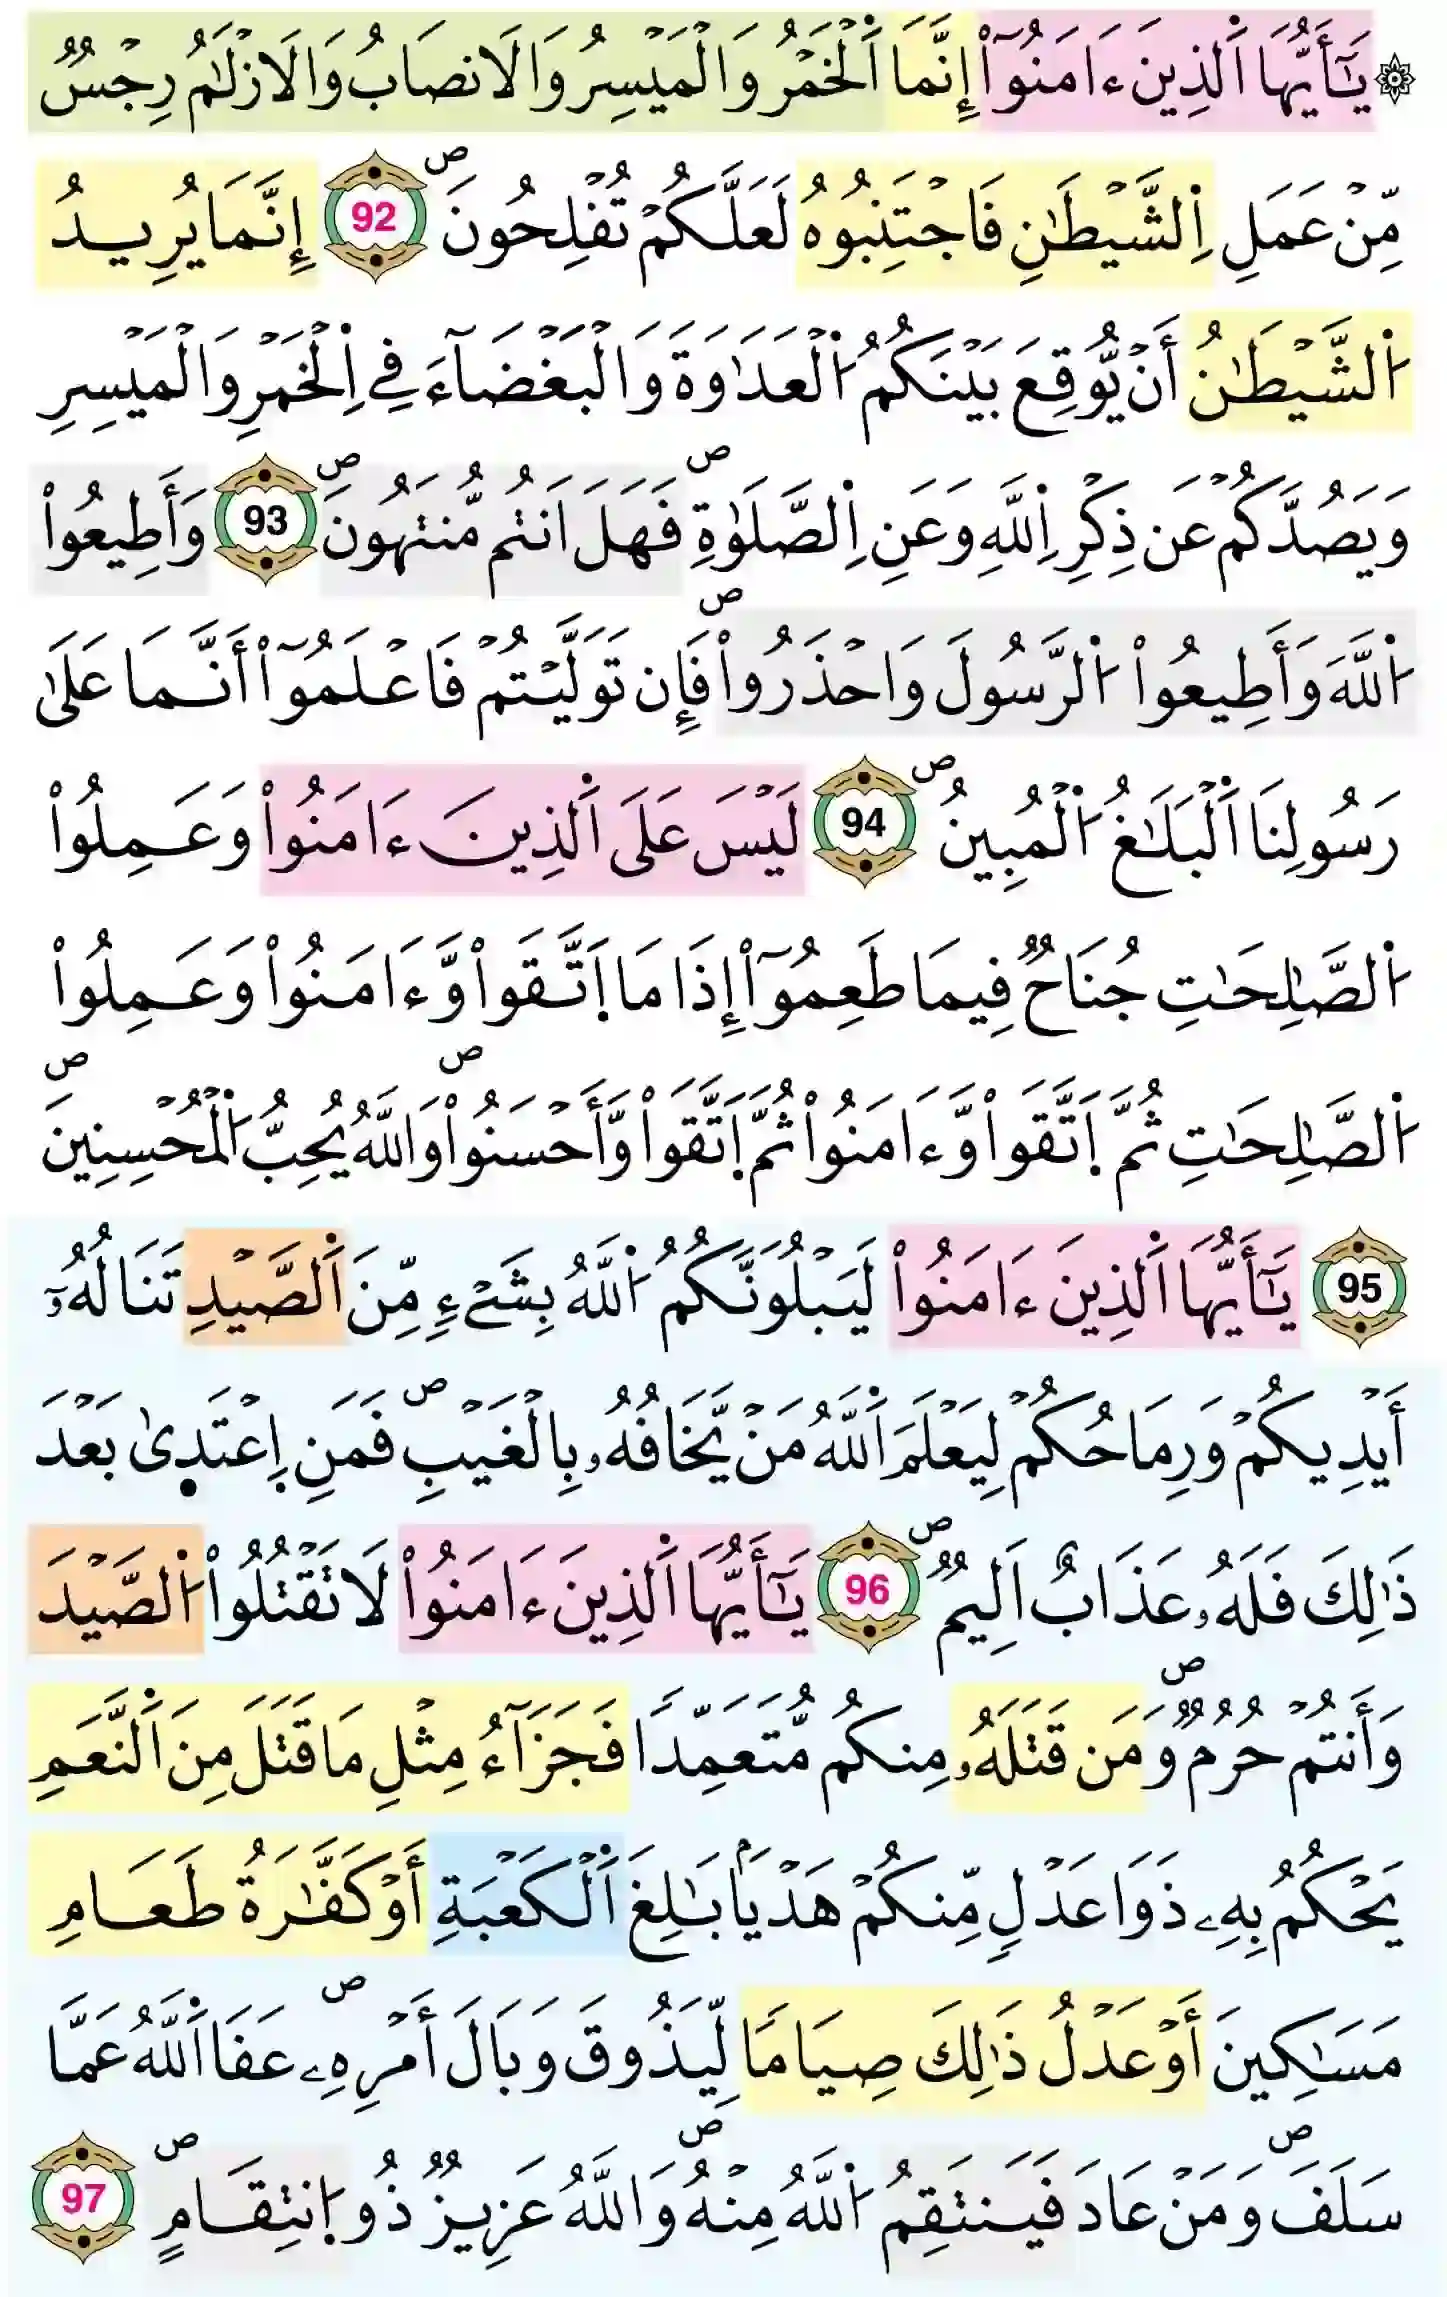 ۞ يَـٰٓأَيُّهَا اَ۬لذِينَ ءَامَنُوٓاْ إِنَّمَا اَ۬لْخَمْرُ وَالْمَيْسِرُ وَالَانصَابُ وَالَازْلَٰمُ رِجْسٞ
مِّنْ عَمَلِ اِ۬لشَّيْطَٰنِ فَاجْتَنِبُوهُ لَعَلَّكُمْ تُفْلِحُونَۖ 92 إِنَّمَا يُرِيدُ
اُ۬لشَّيْطَٰنُ أَنْ يُّوقِعَ بَيْنَكُمُ اُ۬لْعَدَٰوَةَ وَالْبَغْضَآءَ فِے اِ۬لْخَمْرِ وَالْمَيْسِرِ
وَيَصُدَّكُمْ عَن ذِكْرِ اِ۬للَّهِ وَعَنِ اِ۬لصَّلَوٰةِۖ فَهَلَ اَنتُم مُّنتَهُونَۖ 93 وَأَطِيعُواْ
اُ۬للَّهَ وَأَطِيعُواْ اُ۬لرَّسُولَ وَاحْذَرُواْۖ فَإِن تَوَلَّيْتُمْ فَاعْلَمُوٓاْ أَنَّمَا عَلَىٰ
رَسُولِنَا اَ۬لْبَلَٰغُ اُ۬لْمُبِينُۖ 94 لَيْسَ عَلَى اَ۬لذِينَ ءَامَنُواْ وَعَمِلُواْ
اُ۬لصَّٰلِحَٰتِ جُنَاحٞ فِيمَا طَعِمُوٓاْ إِذَا مَا اَ۪تَّقَواْ وَّءَامَنُواْ وَعَمِلُواْ
اُ۬لصَّٰلِحَٰتِ ثُمَّ اَ۪تَّقَواْ وَّءَامَنُواْ ثُمَّ اَ۪تَّقَواْ وَّأَحْسَنُواْۖ وَاللَّهُ يُحِبُّ اُ۬لْمُحْسِنِينَۖ
95 يَـٰٓأَيُّهَا اَ۬لذِينَ ءَامَنُواْ لَيَبْلُوَنَّكُمُ اُ۬للَّهُ بِشَےْءٖ مِّنَ اَ۬لصَّيْدِ تَنَالُهُۥٓ
أَيْدِيكُمْ وَرِمَاحُكُمْ لِيَعْلَمَ اَ۬للَّهُ مَنْ يَّخَافُهُۥ بِالْغَيْبِۖ فَمَنِ اِ۪عْتَد۪ىٰ بَعْدَ
ذَٰلِكَ فَلَهُۥ عَذَابٌ اَلِيمٞۖ 96 يَـٰٓأَيُّهَا اَ۬لذِينَ ءَامَنُواْ لَا تَقْتُلُواْ اُ۬لصَّيْدَ
وَأَنتُمْ حُرُمٞۖ وَمَن قَتَلَهُۥ مِنكُم مُّتَعَمِّداٗ فَجَزَآءُ مِثْلِ مَا قَتَلَ مِنَ اَ۬لنَّعَمِ
يَحْكُمُ بِهِۦ ذَوَا عَدْلٖ مِّنكُمْ هَدْيَاۢ بَٰلِغَ اَ۬لْكَعْبَةِ أَوْ كَفَّٰرَةُ طَعَامِ
مَسَٰكِينَ أَوْ عَدْلُ ذَٰلِكَ صِيَاماٗ لِّيَذُوقَ وَبَالَ أَمْرِهِۦۖ عَفَا اَ۬للَّهُ عَمَّا
سَلَفَۖ وَمَنْ عَادَ فَيَنتَقِمُ اُ۬للَّهُ مِنْهُۖ وَاللَّهُ عَزِيزٞ ذُو اُ۪نتِقَامٍۖ 97